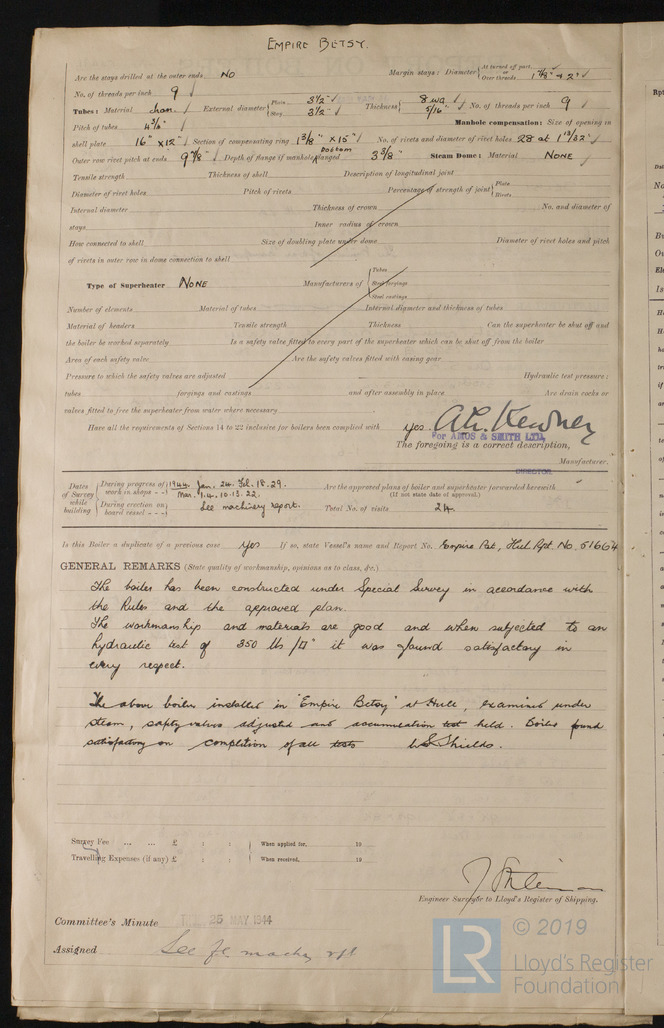 EMPIRE BETSY.
Are the stays drilled at the outer ends No Margin stays: Diameter { At turned off part, or Over threads 1 7/8" & 2"
No. of threads per inch 9
Tubes: Material Iron. External diameter { Plain 3 1/2" Stay 3 1/2" Thickness { 8 wg. 5/16" No. of threads per inch 9
Pitch of tubes 4 3/4" Manhole compensation: Size of opening in
shell plate 16" x 12" Section of compensating ring 1 3/8" x 15" No. of rivets and diameter of rivet holes 28 at 1 13/32"
Outer row rivet pitch at ends 9 7/8" Depth of flange if manhole flanged bottom 3 3/8" Steam Dome: Material NONE
Tensile strength Thickness of shell Description of longitudinal joint
Diameter of rivet holes Pitch of rivets Percentage of strength of joint { Plate Rivets
Internal diameter Thickness of crown No. and diameter of
stays Inner radius of crown
How connected to shell Size of doubling plate under dome Diameter of rivet holes and pitch
of rivets in outer row in dome connection to shell
Type of Superheater NONE Manufacturers of { Tubes Steel forgings Steel castings
Number of elements Material of tubes Internal diameter and thickness of tubes
Material of headers Tensile strength Thickness Can the superheater be shut off and
the boiler be worked separately Is a safety valve fitted to every part of the superheater which can be shut off from the boiler
Area of each safety valve Are the safety valves fitted with easing gear
Pressure to which the safety valves are adjusted Hydraulic test pressure:
tubes forgings and castings and after assembly in place Are drain cocks or
valves fitted to free the superheater from water where necessary
Have all the requirements of Sections 14 to 22 inclusive for boilers been complied with yes.
For AMOS & SMITH LTD.
The foregoing is a correct description,
DIRECTOR. Manufacturer.
Dates of Survey while building { During progress of work in shops - - } 1944. Jan. 24. Feb. 18. 29. Mar. 1. 4. 10. 13. 22. Are the approved plans of boiler and superheater forwarded herewith (If not state date of approval.)
During erection on board vessel - - - } See machinery report. Total No. of visits 24
Is this Boiler a duplicate of a previous case yes If so, state Vessel's name and Report No. Empire Pat, Hull Rpt. No. 51664
GENERAL REMARKS (State quality of workmanship, opinions as to class, &c.)
The boiler has been constructed under Special Survey in accordance with
the Rules and the approved plan.
The workmanship and materials are good and when subjected to an
hydraulic test of 350 lbs/□" it was found satisfactory in
every respect.
The above boiler installed in "Empire Betsy" at Hull, examined under
steam, safety valves adjusted and accumulation test held. Boiler found
satisfactory on completion of all tests Shields.
Survey Fee ... ... £ : : When applied for, 19
Travelling Expenses (if any) £ : : When received, 19
Engineer Surveyor to Lloyd's Register of Shipping.
Committee's Minute 25 MAY 1944
Assigned See machy rpt
LR © 2019
Lloyd's Register
Foundation